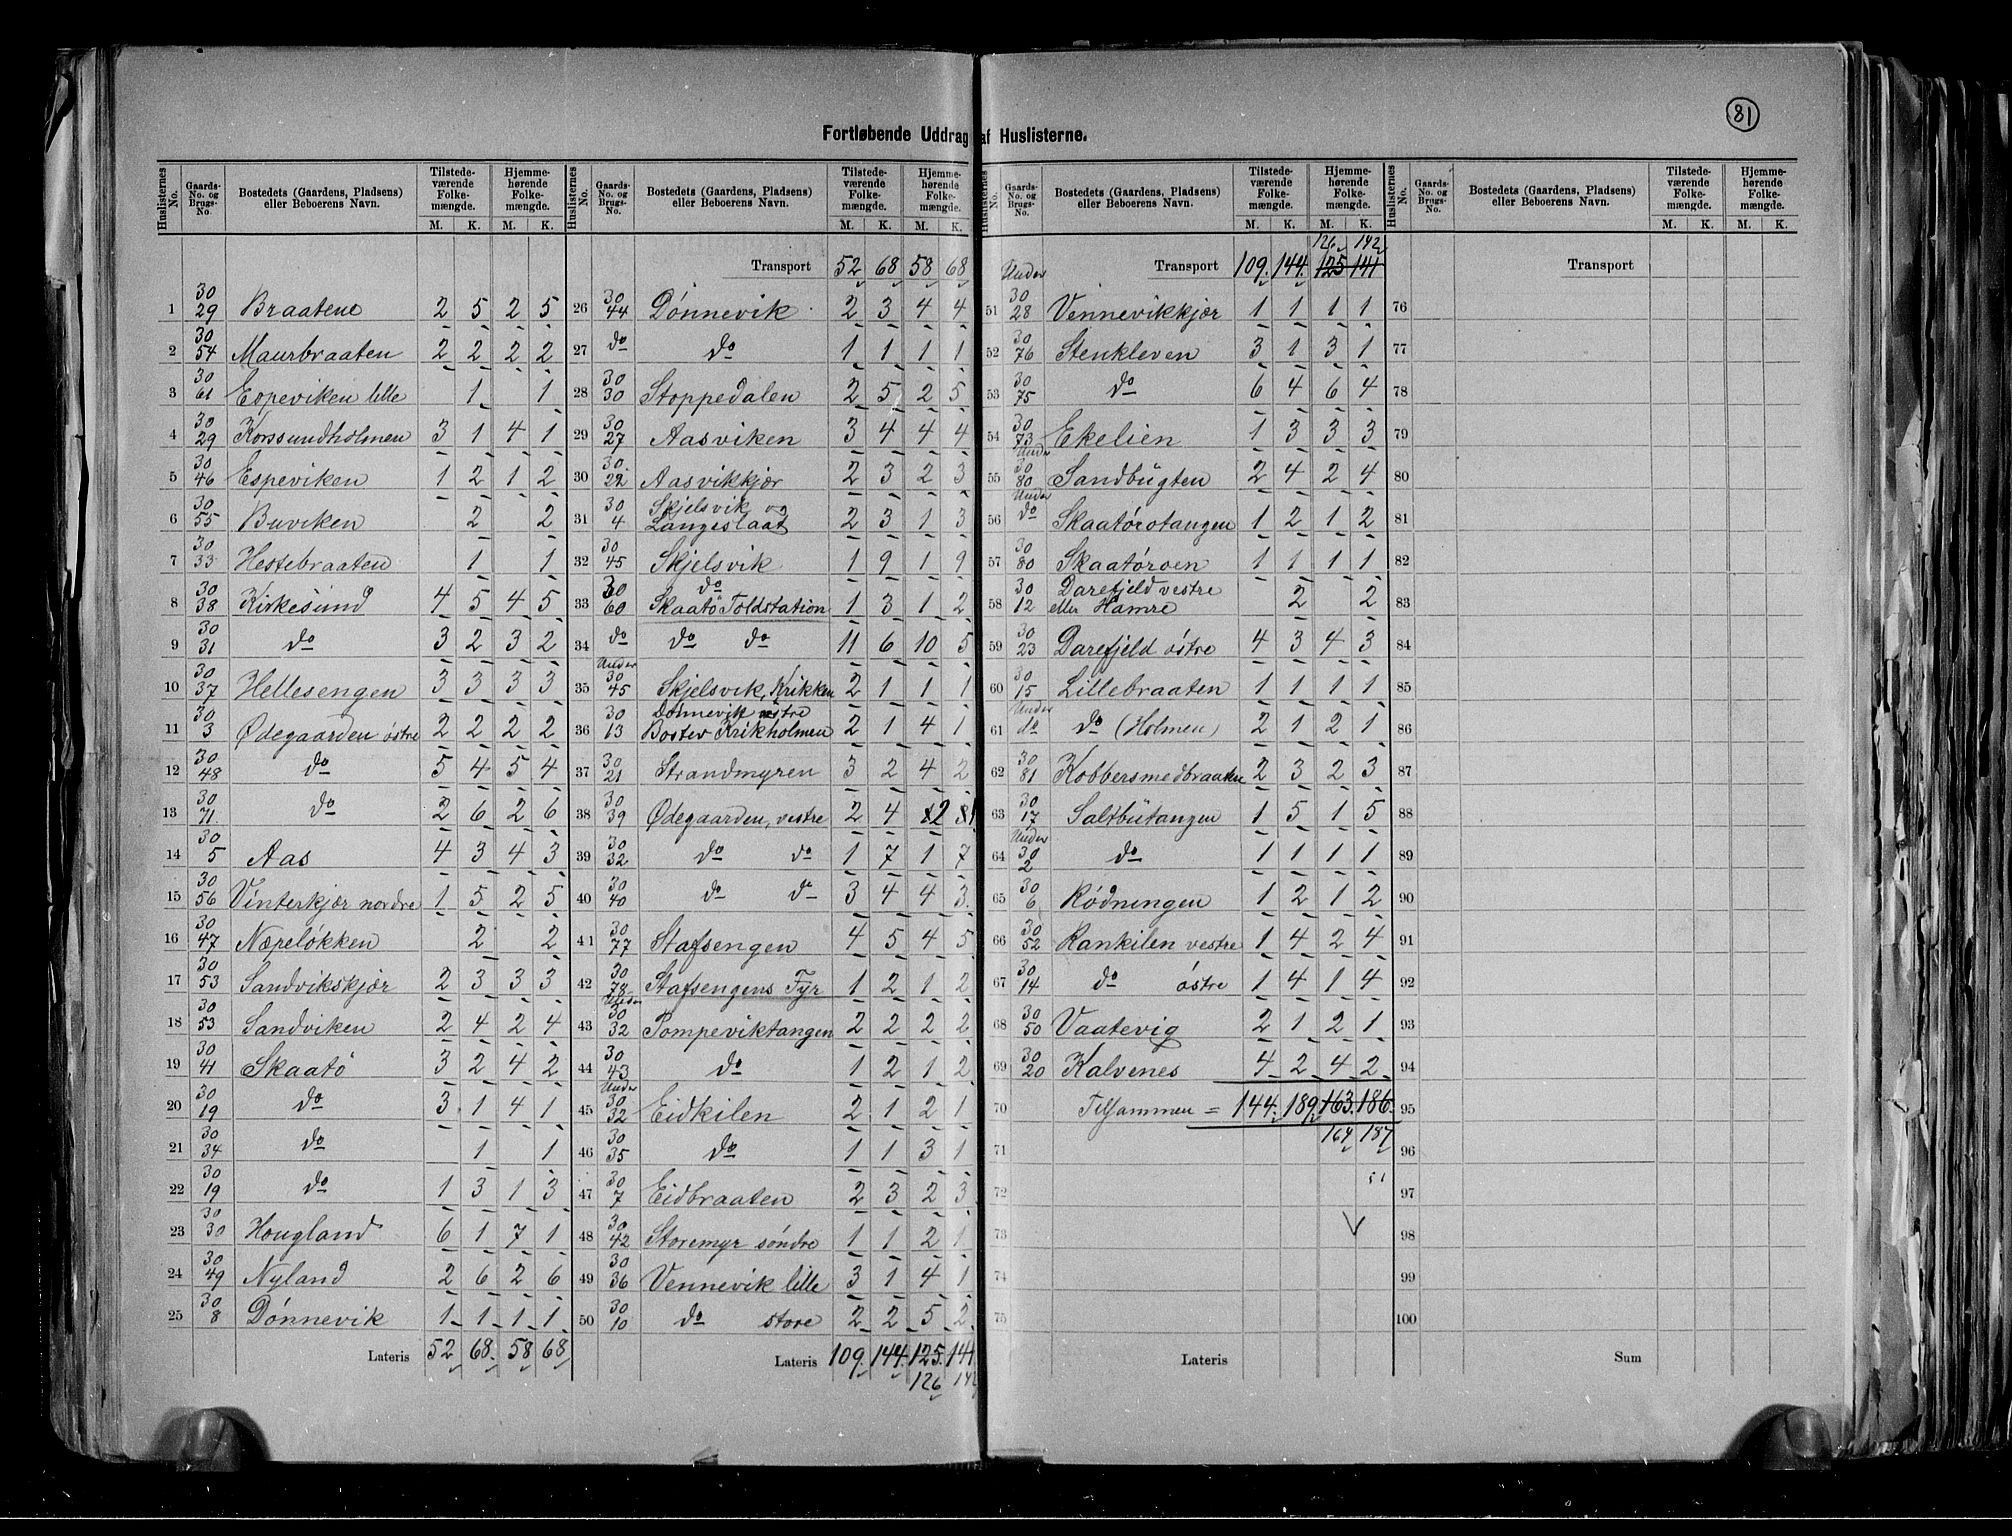 81
Fortløbende Uddrag af Huslisterne.
Huslisternes No. Gaards-No. og Brugs-No. Bostedets (Gaardens, Pladsens) eller Beboerens Navn. Tilstedeværende Folkemængde. M. K. Hjemmehørende Folkemængde. M. K.
1 30/29 Braatene 2 5 2 5
2 30/54 Maurbraaten 2 2 2 2
3 30/61 Espeviken lille 1 1
4 30/29 Korssundholmen 3 1 4 1
5 30/46 Espeviken 1 2 1 2
6 30/55 Buviken 2 2
7 30/33 Hestebraaten 1 1
8 30/38 Kirkesund 4 5 4 5
9 30/31 do 3 2 3 2
10 30/37 Hellesengen 3 3 3 3
11 30/3 Ødegaarden østre 2 2 2 2
12 30/48 do 5 4 5 4
13 30/71 do 2 6 2 6
14 30/5 Aas 4 3 4 3
15 30/56 Vinterkjær nordre 1 5 2 5
16 30/47 Næreløkken 2 2
17 30/53 Sandvikskjær 2 3 3 3
18 30/53 Sandviken 2 4 2 4
19 30/41 Skaatö 3 2 4 2
20 30/19 do 3 1 4 1
21 30/34 do 1 1
22 30/19 do 1 3 1 3
23 30/30 Hougland 6 1 7 1
24 30/49 Nyland 2 6 2 6
25 30/8 Dønnevik 1 1 1 1
Lateris 52 68 58 68
Huslisternes No. Gaards-No. og Brugs-No. Bostedets (Gaardens, Pladsens) eller Beboerens Navn. Tilstedeværende Folkemængde. M. K. Hjemmehørende Folkemængde. M. K.
Transport 52 68 58 68
26 30/44 Dønnevik 2 3 4 4
27 do do 1 1 1 1
28 30/30 Stoppedalen 2 5 2 5
29 30/27 Aasviken 3 4 4 4
30 30/22 Aasvikkjær 2 3 2 3
31 30/4 Skjelsvik og Langeslaat 2 3 1 3
32 30/45 Skjelsvik 1 9 1 9
33 30/60 do Skaatö Toldstation 1 3 1 2
34 do do do 11 6 10 5
35 Under 30/45 Skjelsvik, Krikken 2 1 1 1
36 30/13 Dønnevik Krikholmen 2 1 4 1
37 30/21 Strandmyren 3 2 4 2
38 30/39 Ødegaarden, vestre 2 4 2 1
39 30/32 do do 1 7 1 7
40 30/40 do do 3 4 4 3
41 30/77 Stafsengen 4 5 4 5
42 30/78 Stafsengens Fyr 1 2 1 2
43 Under 30/32 Pompeviktangen 2 2 2 2
44 30/43 do 1 2 1 2
45 Under 30/32 Eidkilen 2 1 2 1
46 30/35 do 1 1 3 1
47 30/7 Eidbraaten 2 3 2 3
48 30/42 Storemyr søndre 1 1 2 1
49 30/36 Vennevik lille 3 1 4 1
50 30/10 do store 2 2 5 2
Lateris 109 144 125 141
126 142
Huslisternes No. Gaards-No. og Brugs-No. Bostedets (Gaardens, Pladsens) eller Beboerens Navn. Tilstedeværende Folkemængde. M. K. Hjemmehørende Folkemængde. M. K.
126 142
Transport 109 144 125 141
51 Under 30/28 Vennevikkjær 1 1 1 1
52 30/76 Stenkleven 3 1 3 1
53 30/75 do 6 4 6 4
54 30/73 Ekelien 1 3 3 3
55 Under 30/80 Sandbugten 2 4 2 4
56 Under do Skaatørotangen 1 2 1 2
57 30/80 Skaatøroen 1 1 1 1
58 30/12 Darefjeld vestre eller Hamre 2 2
59 30/23 Darefjeld østre 4 3 4 3
60 30/15 Lillebraaten 1 1 1 1
61 Under do do (Holmen) 2 1 2 1
62 30/81 Kobbersmedbraaten 2 3 2 3
63 30/17 Saltbutangen 1 5 1 5
64 Under 30/2 do 1 1 1 1
65 30/6 Rødningen 1 2 1 2
66 30/52 Rankilen vestre 1 4 2 4
67 30/14 do østre 1 4 1 4
68 30/50 Vaatevig 2 1 2 1
69 30/20 Kalvenes 4 2 4 2
70 Tilsammen = 144 189 163 186
71 164 187
72
73
74
75
Lateris
Huslisternes No. Gaards-No. og Brugs-No. Bostedets (Gaardens, Pladsens) eller Beboerens Navn. Tilstedeværende Folkemængde. M. K. Hjemmehørende Folkemængde. M. K.
Transport
76
77
78
79
80
81
82
83
84
85
86
87
88
89
90
91
92
93
94
95
96
97
98
99
100
Sum